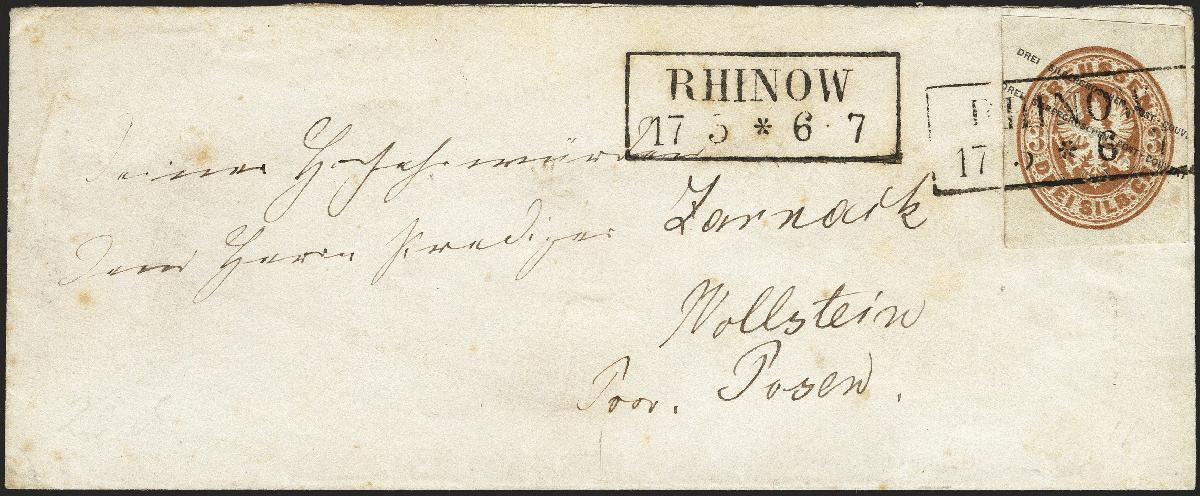 RHINOW
17 3 * 6 · 7
RHINOW
17 3 * 6
DREI SILB. G
Seiner Hochehrwürden
Dem Herrn Prediger Zarnack
Wollstein
Prov. Posen.